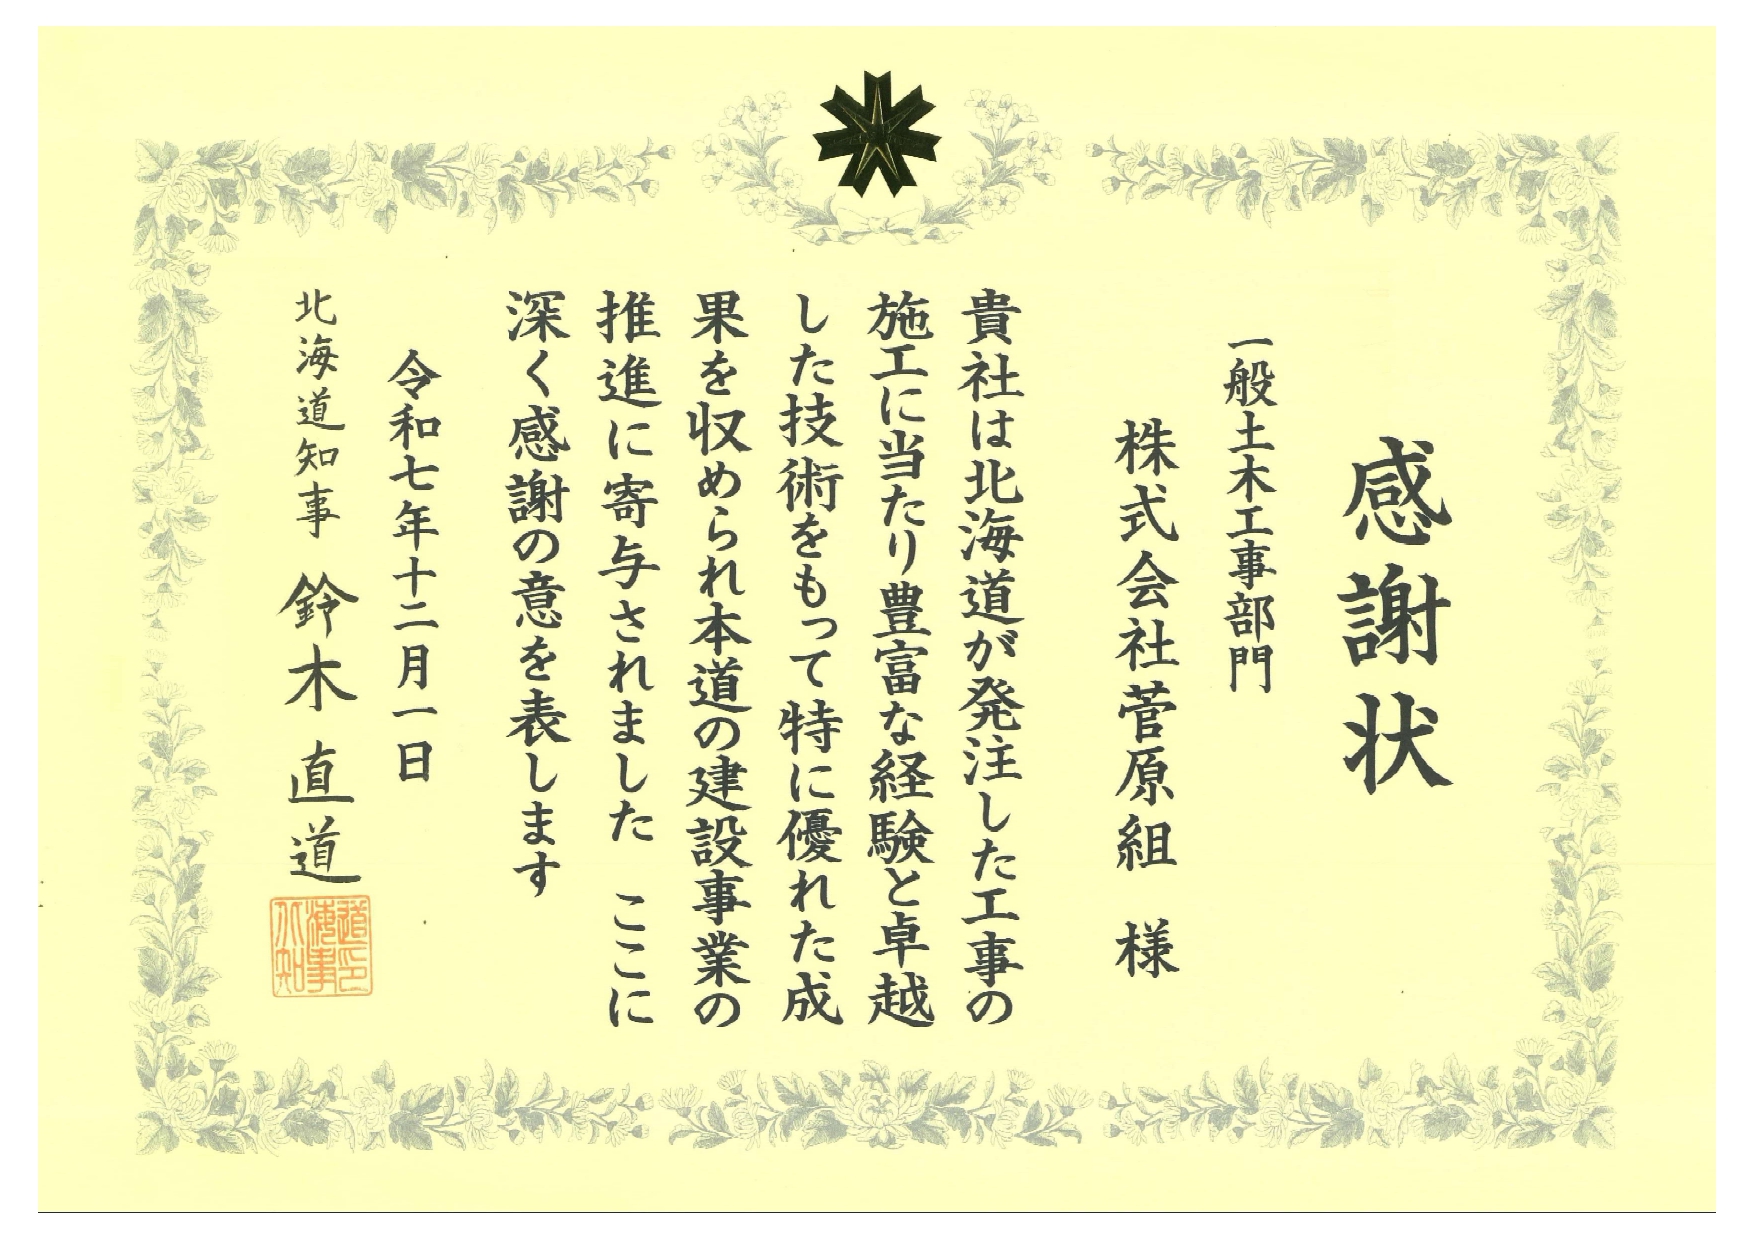 感謝状
一般土木工事部門
株式会社菅原組 様
貴社は北海道が発注した工事の
施工に当たり豊富な経験と卓越
した技術をもって特に優れた成
果を収められ本道の建設事業の
推進に寄与されました ここに
深く感謝の意を表します
令和七年十二月一日
北海道知事 鈴木直道
道印
海事
北知